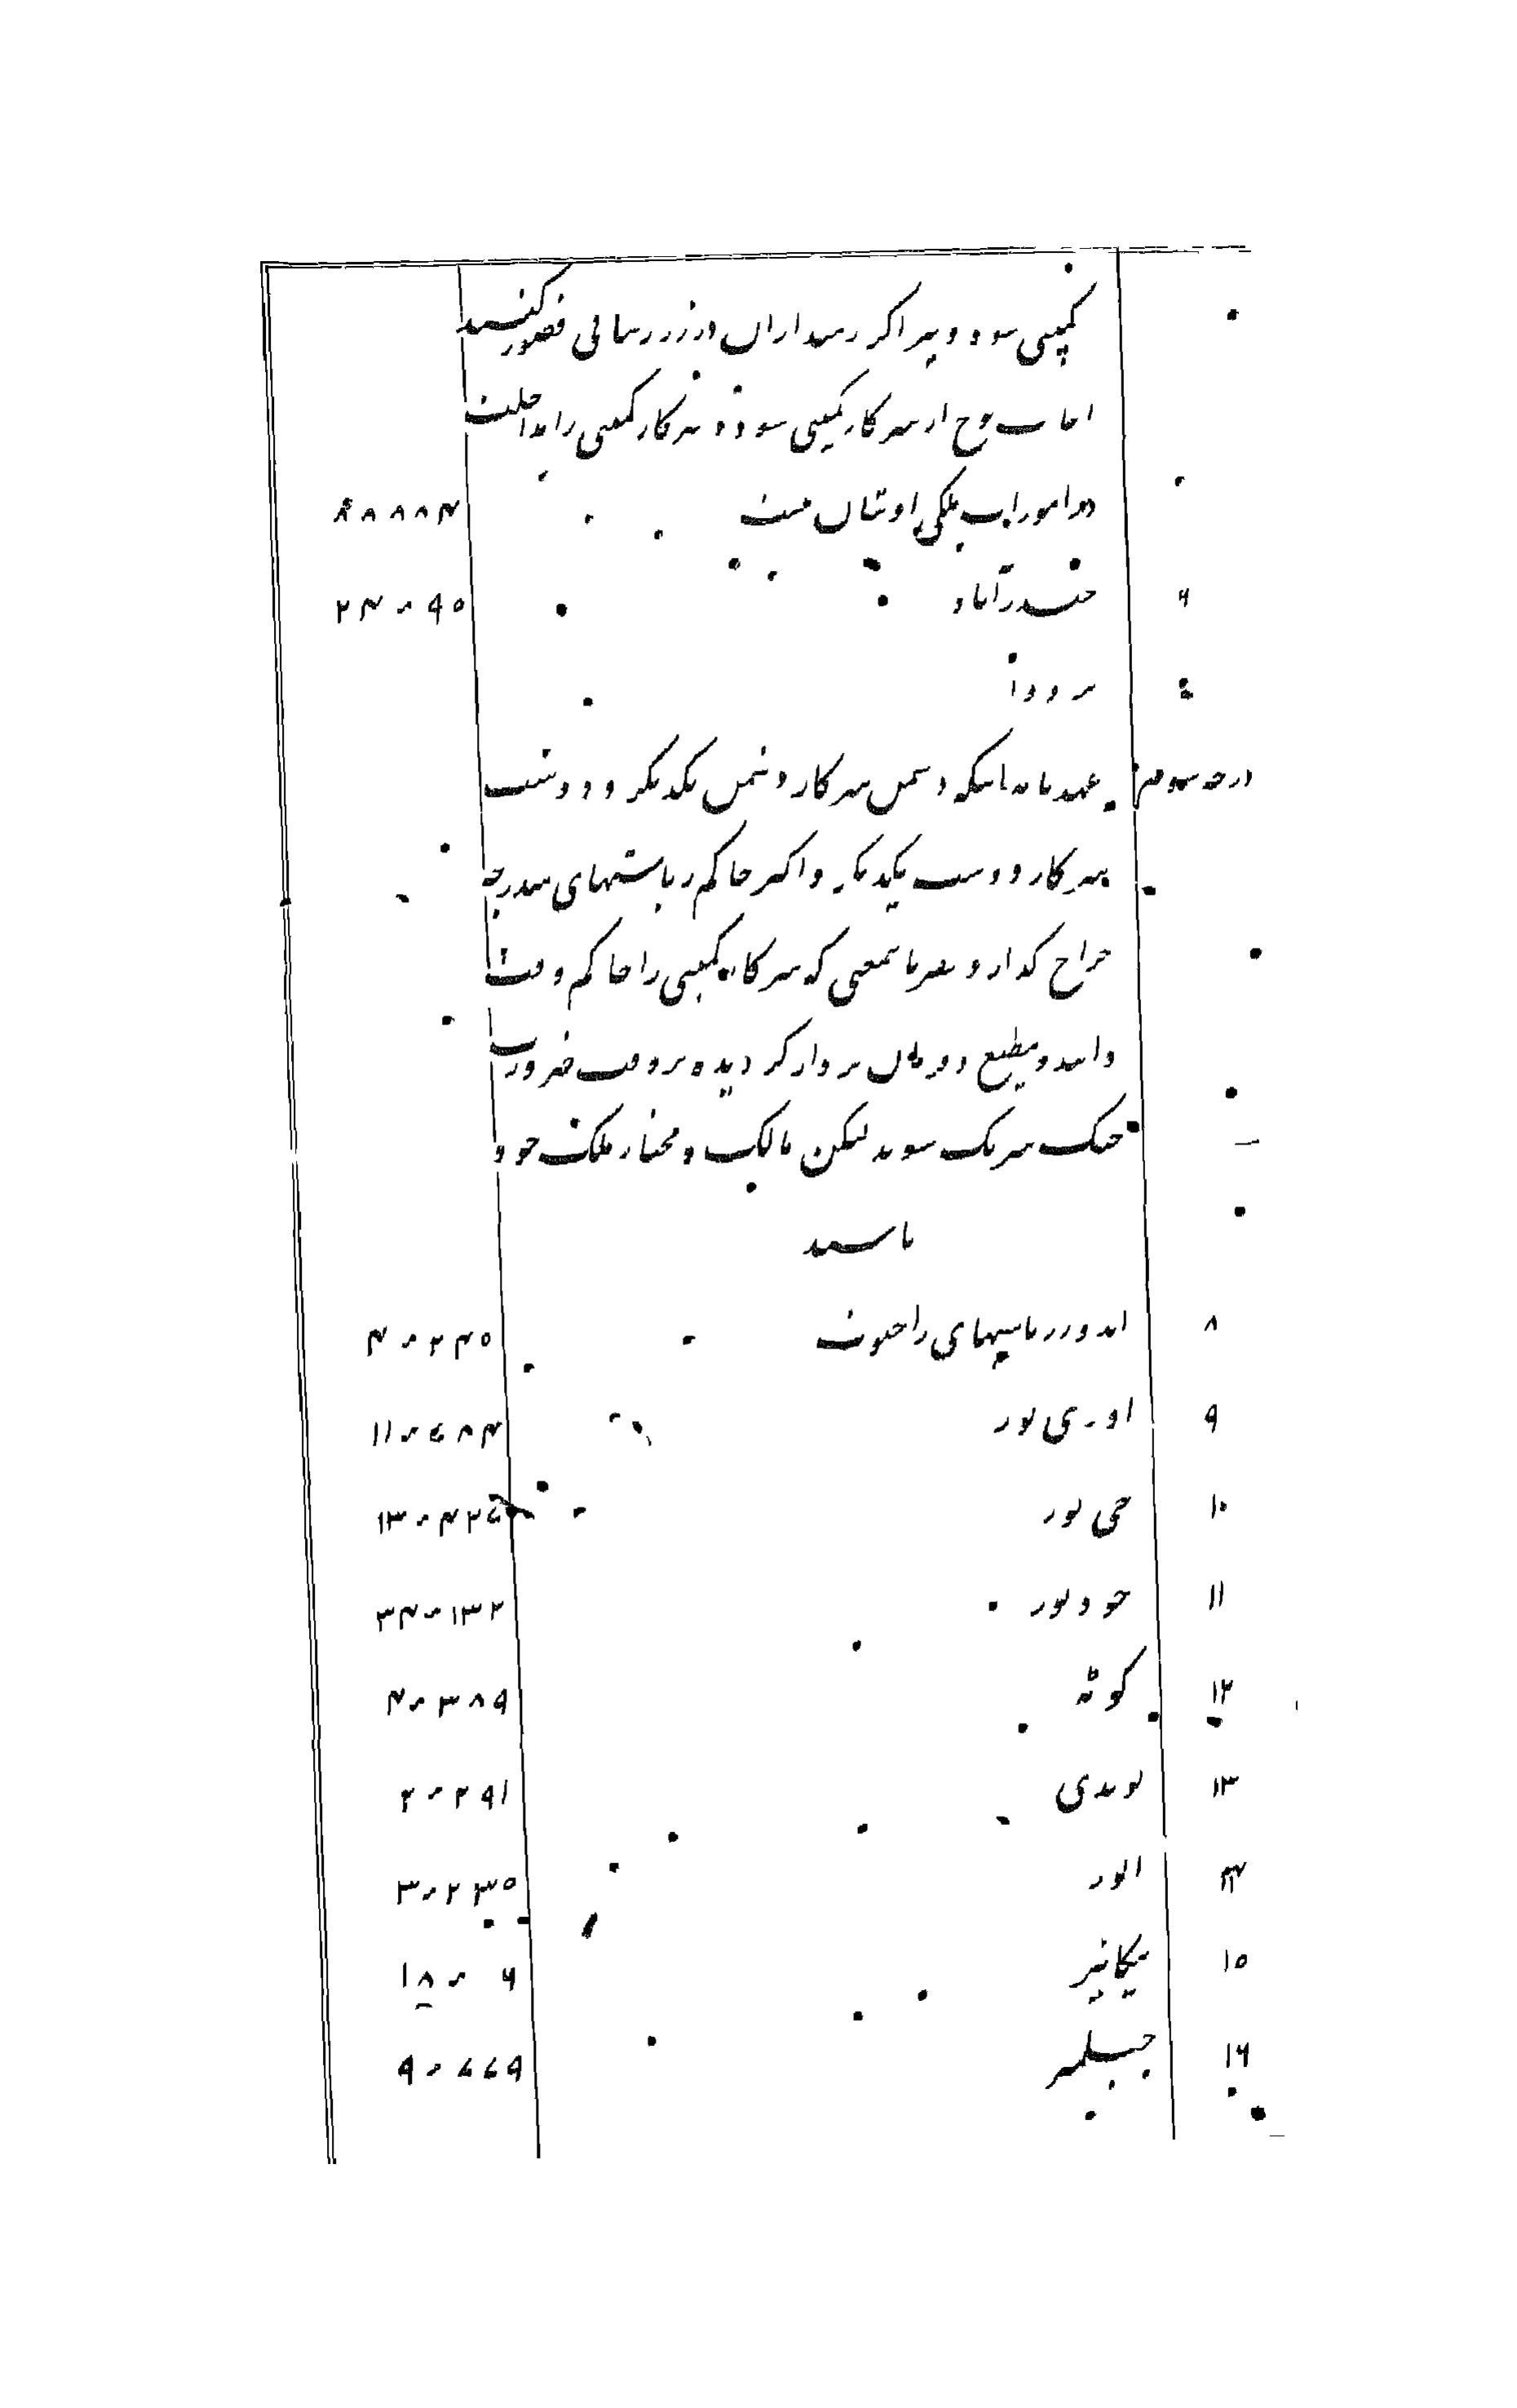 کمپنی شود و نیز اگر زمینداران در زر رسانی قصور کنند
اعانت فوج از سرکار کمپنی شود و سرکار کمپنی را مداخلت
در امورات ملکی اوشان نیست ۸۸۸۴
۶ حیدرآباد ۲۴۰۹۵
برودا
درجه سوم عهدنامه اینکه دشمن سرکار دشمن یکدیگر و دوست
سرکار دوست یکدیگر و اکثر حاکم ریاستهای مندرجه
خراج گذار و بعضی که سرکار کمپنی را حاکم وقت
دانند و مطیع و فرمان بردار گردیده بر وقت ضرورت
جنگ شریک شوند لیکن مالک و مختار ملک خود
باشند
۸ اندور ریاستهای راجپوت ۴۰۲۴۵
۹ اودی پور ۱۱۰۷۸۴
۱۰ جی پور ۱۳۰۴۲۷
۱۱ جودپور ۳۴۰۱۳۲
۱۲ کوٹه ۴۰۳۸۹
۱۳ بوندی ۲۰۲۹۱
۱۴ الور ۳۰۲۳۵
۱۵ بیکانیر ۱۸۰۶
۱۶ جیسلمیر ۹۰۷۷۹